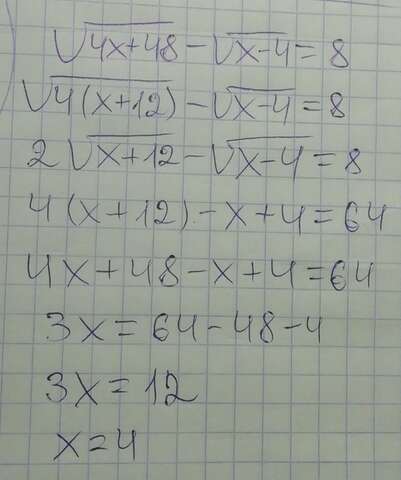 √4x+48 - √x-4 = 8
√4(x+12) - √x-4 = 8
2√x+12 - √x-4 = 8
4(x+12) - x+4 = 64
4x+48-x+4=64
3x = 64-48-4
3x = 12
x=4